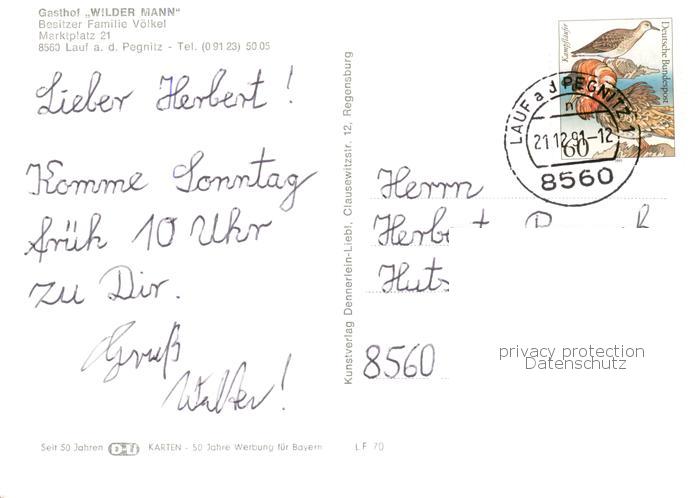 Gasthof „WILDER MANN"
Besitzer Familie Völkel
Marktplatz 21
8560 Lauf a. d. Pegnitz - Tel. (0 91 23) 50 05
Lieber Herbert!
Komme Sonntag
früh 10 Uhr
zu Dir.
Gruß
Walter!
Seit 50 Jahren D-Li KARTEN - 50 Jahre Werbung für Bayern
LF 70
Kunstverlag Dennerlein-Liebl, Clausewitzstr. 12, Regensburg
Kampfläufer
Deutsche Bundespost
60
LAUF a d PEGNITZ 1
n
21.12.91-12
8560
Herrn
Herbe
Huts
8560
privacy protection
Datenschutz